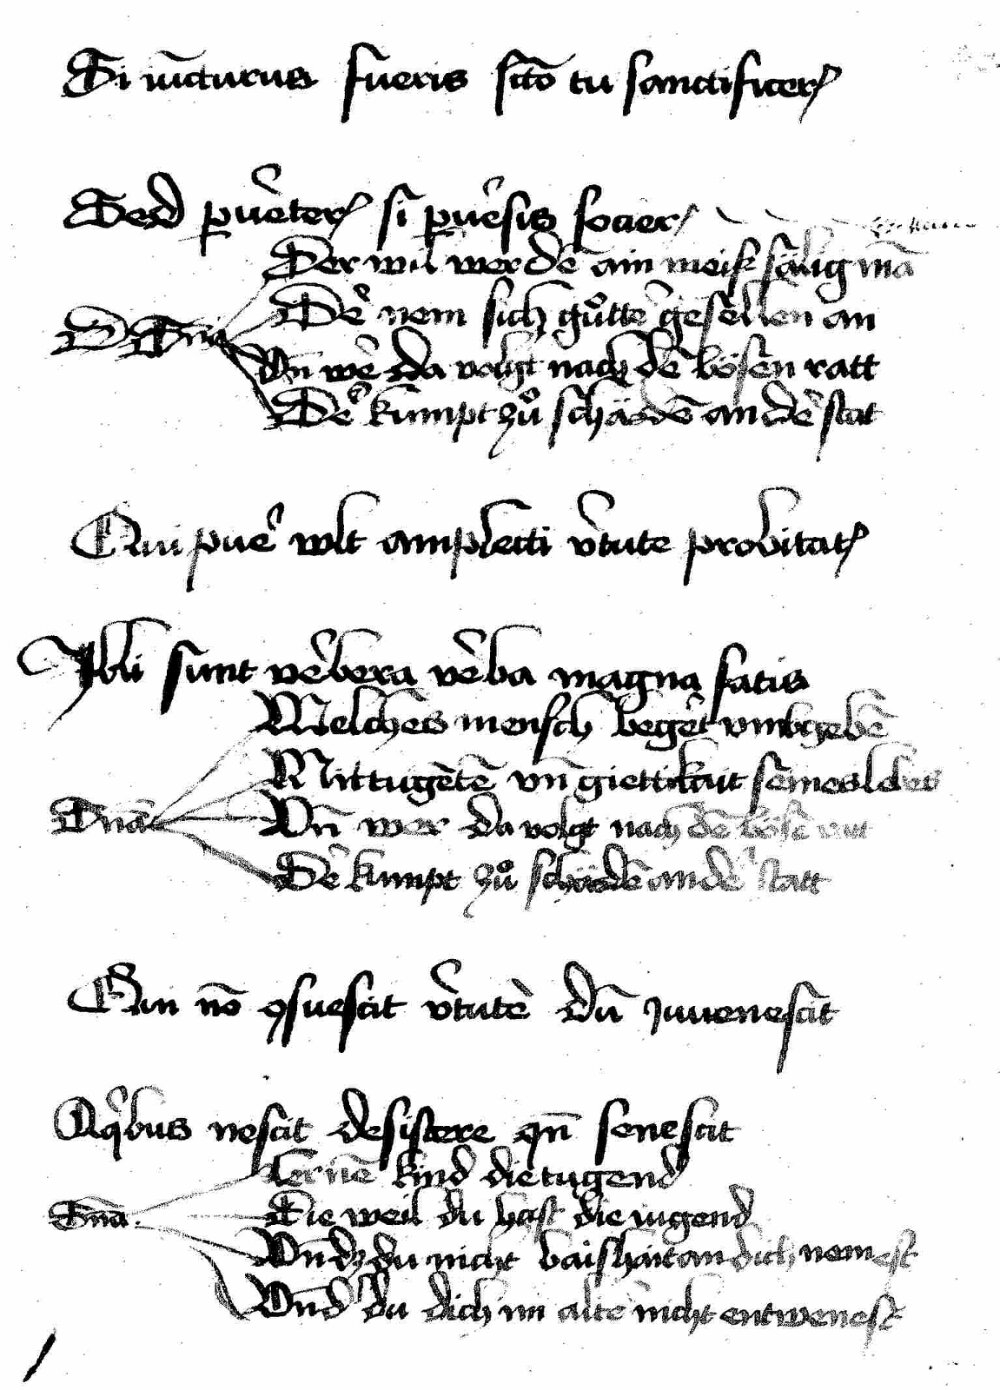 Si iūcturus fueris scō tu sanctificer̄
Sed pvêter̄ si pvêsis socier̄
Der wil werdē ain meist sälig mā
Dê nem sich gůttē gesellen an
Vn̄ wê da volgt nach dē bösen ratt
Dê kumpt zů schädē an dê stat
Qui puê wlt amplecti v̂tute probitat̄
Illi sunt vêbera vêba magna satis
Welches mensch begêt vmbgebē
Mit tugētē vn̄ giettikait seines lebēs
Vn̄ wer da volgt nach dē bösē ratt
Dê kumpt zů schädē an dê statt
Qui nō ꝯsuescit v̂tutē dū juuenescit
A qͥbus nescit desistere qn̄ senescit
Lernē kind die tugend
Die weil du hast die iugend
Vn̄ dz du nicht baishait an dich nemest
Vnd du dich im altê nicht entwenest